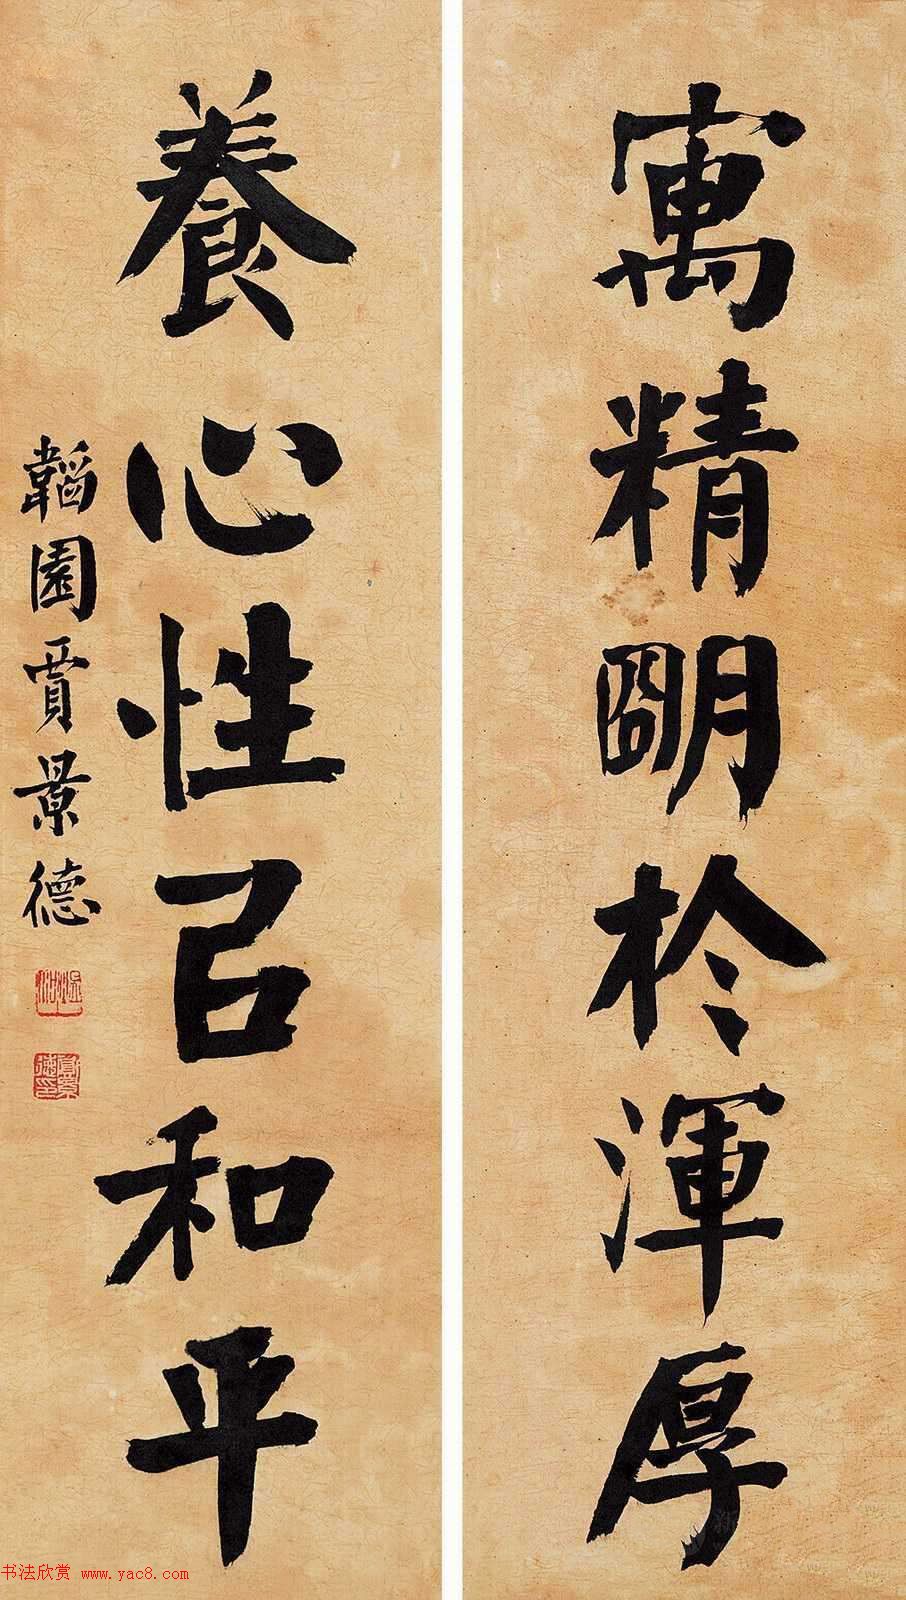 寓精朙於渾厚
養心性㠯和平
韜園賈景德
書法欣赏 www.yac8.com